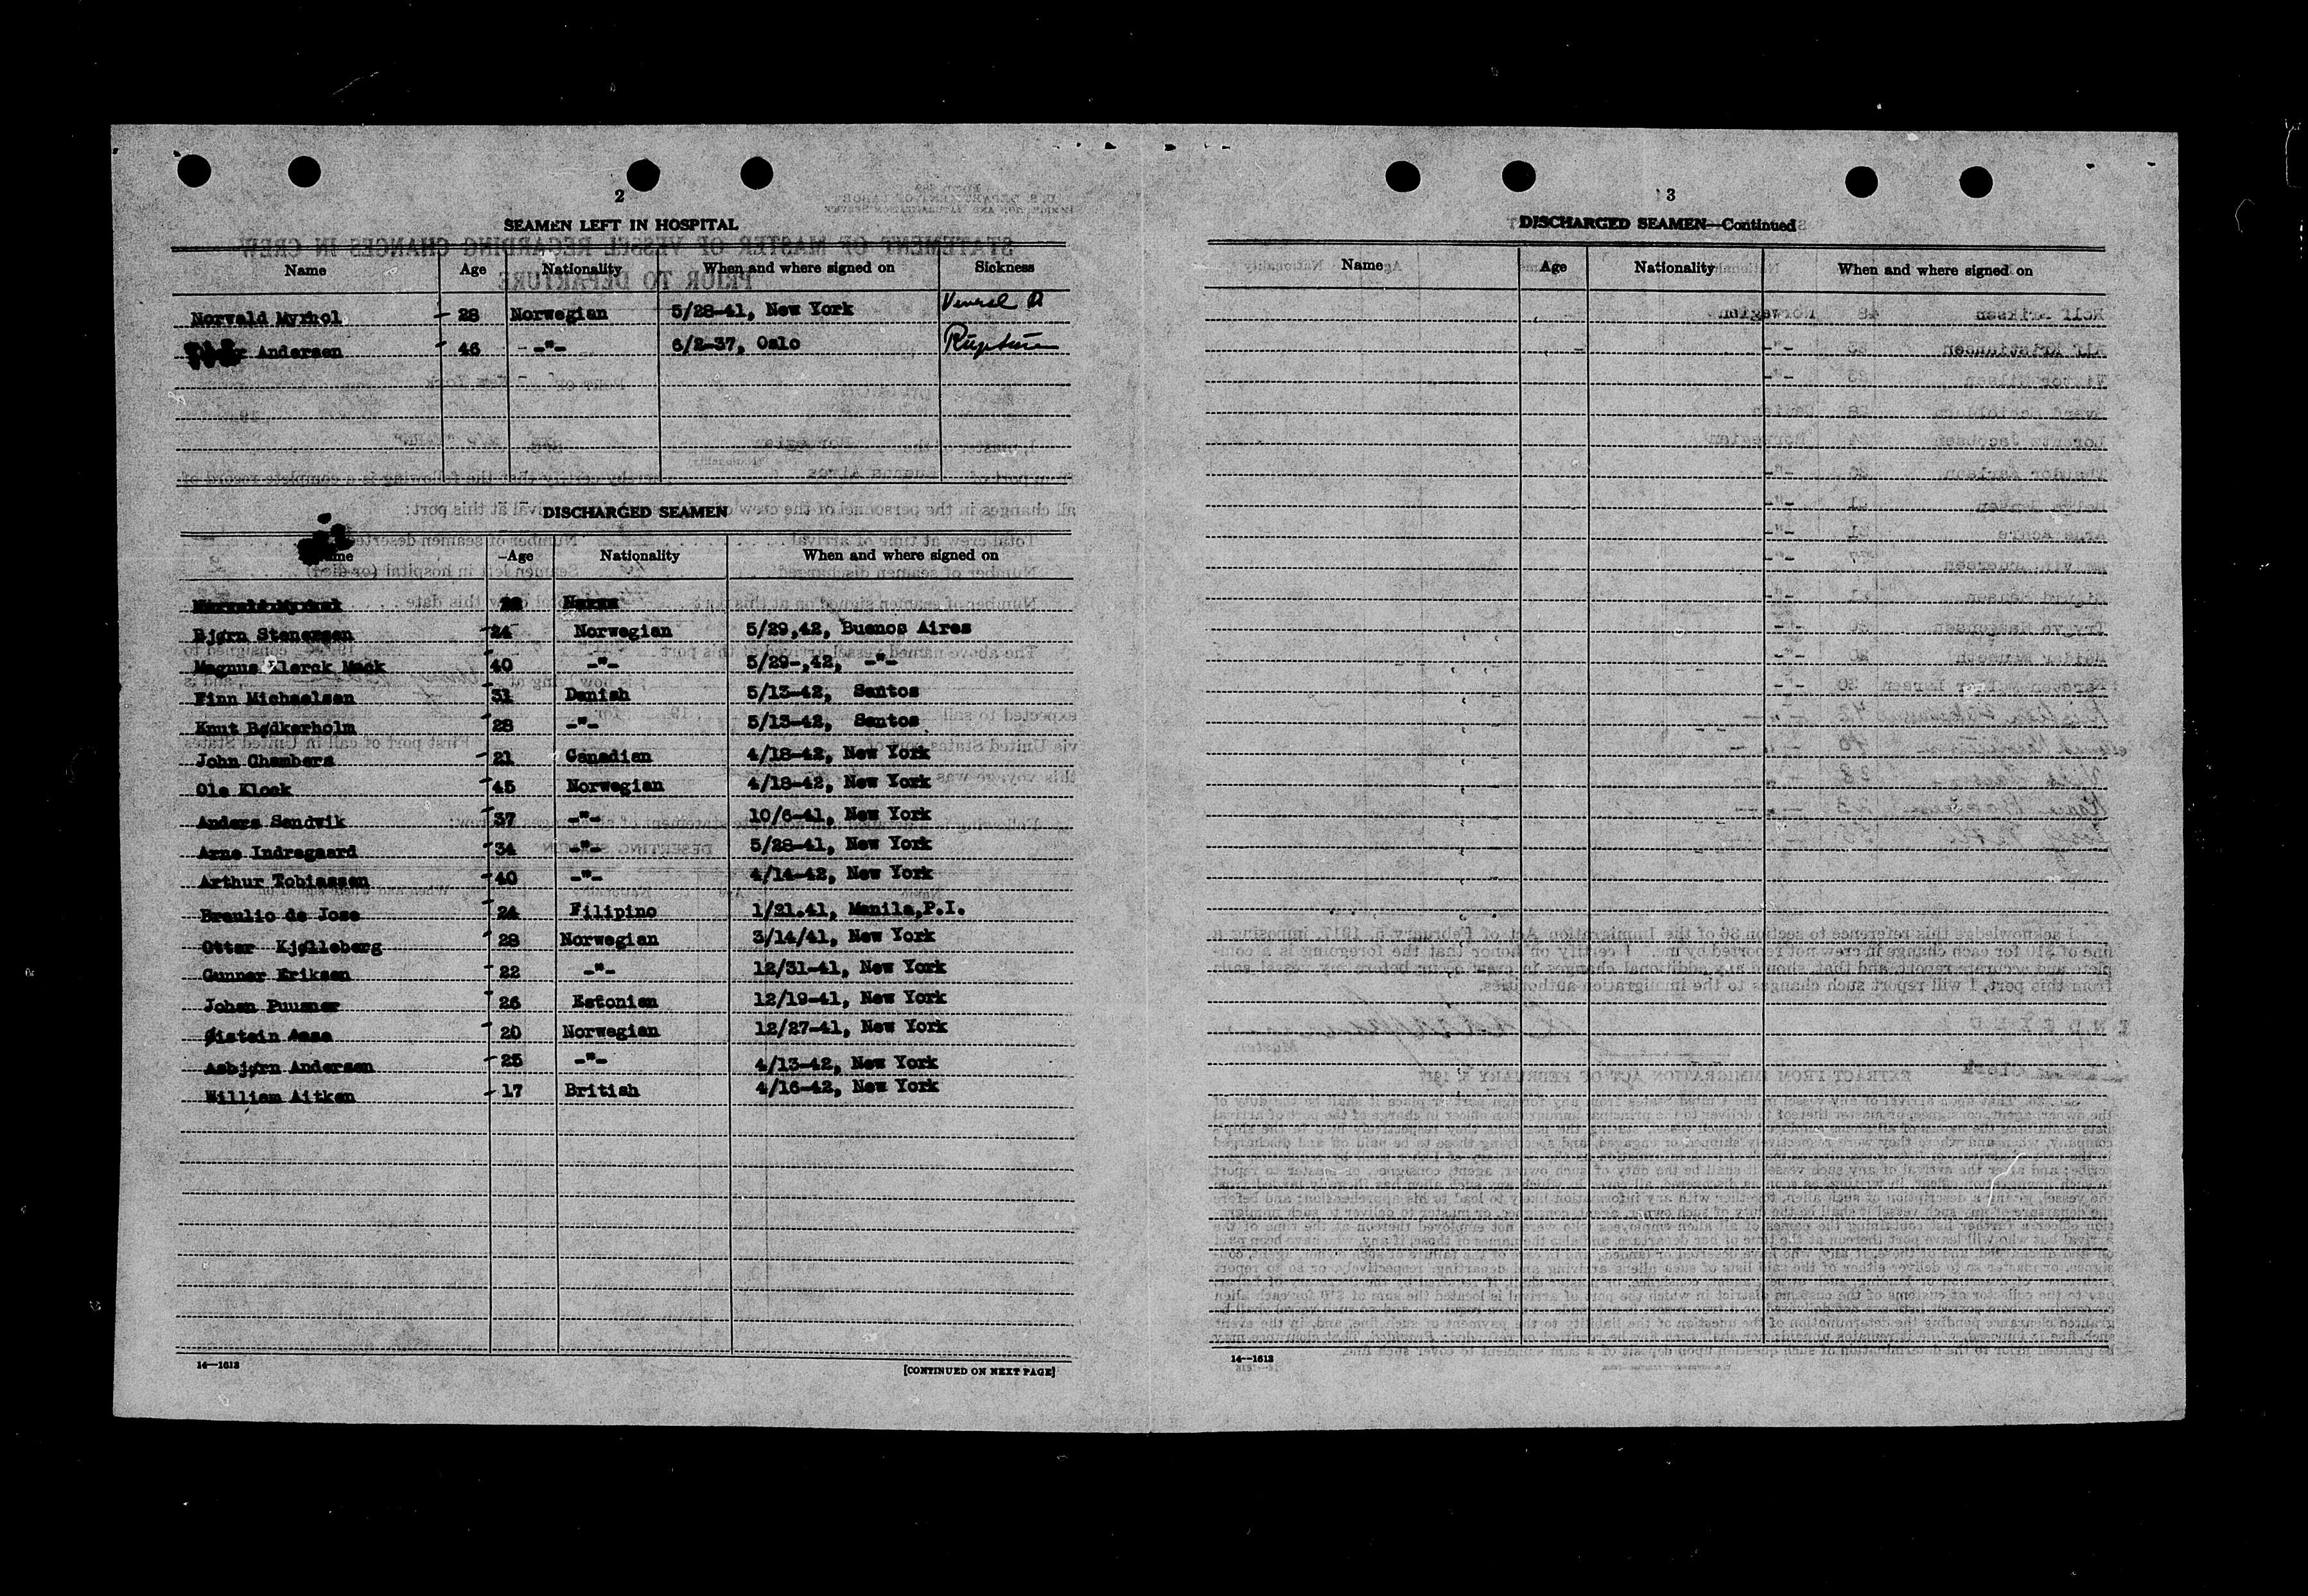 2
SEAMEN LEFT IN HOSPITAL
Name Age Nationality When and where signed on Sickness
Norwald Myrhol 28 Norwegian 5/28-41, New York Veneral D
Andersen 46 -"- 6/2-37, Oslo Rupture
DISCHARGED SEAMEN
Name Age Nationality When and where signed on
Bjørn Stenersen 24 Norwegian 5/29,42, Buenos Aires
Magnus Klerck Mack 40 -"- 5/29-,42, -"-
Finn Michaelsen 31 Danish 5/13-42, Santos
Knut Bødkerholm 28 -"- 5/13-42, Santos
John Chambers 21 Canadian 4/18-42, New York
Ole Klock 45 Norwegian 4/18-42, New York
Anders Sandvik 37 -"- 10/6-41, New York
Arne Indregaard 34 -"- 5/28-41, New York
Arthur Tobiassen 40 -"- 4/14-42, New York
Braulio de Jose 24 Filipino 1/21.41, Manila,P.I.
Ottar Kjølleberg 28 Norwegian 3/14/41, New York
Gunnar Eriksen 22 -"- 12/31-41, New York
Johan Puusner 26 Estonian 12/19-41, New York
Øistein Aase 20 Norwegian 12/27-41, New York
Asbjørn Andersen 25 -"- 4/13-42, New York
William Aitken 17 British 4/16-42, New York
14—1613
[CONTINUED ON NEXT PAGE]
3
DISCHARGED SEAMEN—Continued
Name Age Nationality When and where signed on
14—1613